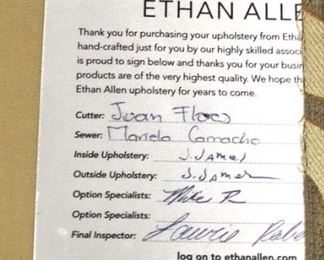 ETHAN ALLE
Thank you for purchasing your upholstery from Etha
hand-crafted just for you by our highly skilled associ
is proud to sign below and thanks you for your busin
products are of the very highest quality. We hope th
Ethan Allen upholstery for years to come.
Cutter: Juan Flores
Sewer: Mariela Camacho
Inside Upholstery: J. James
Outside Upholstery: J. James
Option Specialists: Mike R
Option Specialists:
Final Inspector: Laurie
log on to ethanallen.com